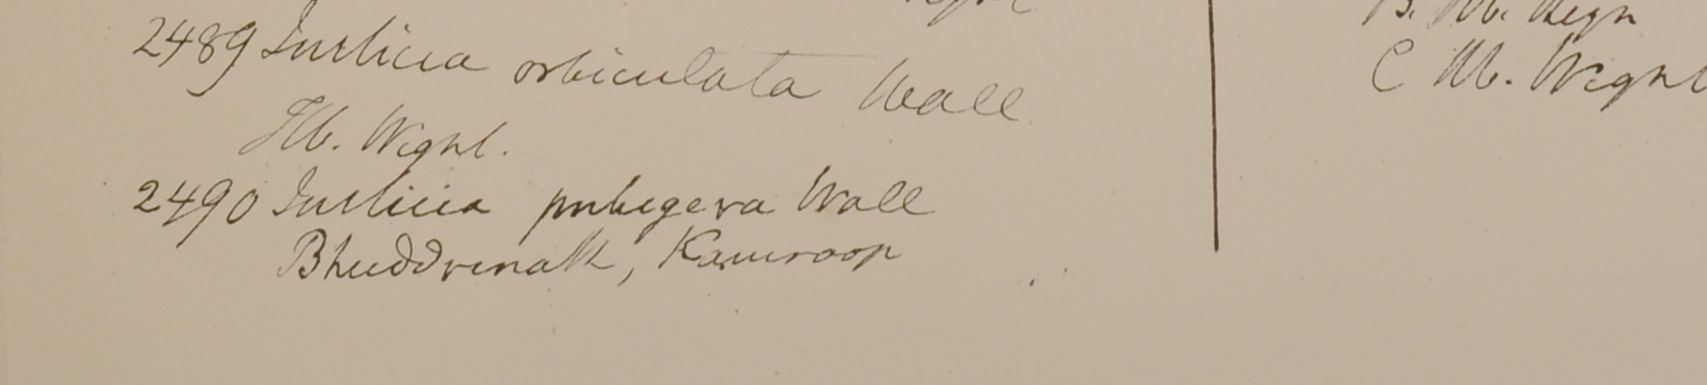 2489 Justicia orbiculata Wall
Hb. Wight.
2490 Justicia pubigera Wall
Bhuddrinath, Kamroop
B. Hb. Heyn
C Hb. Wight